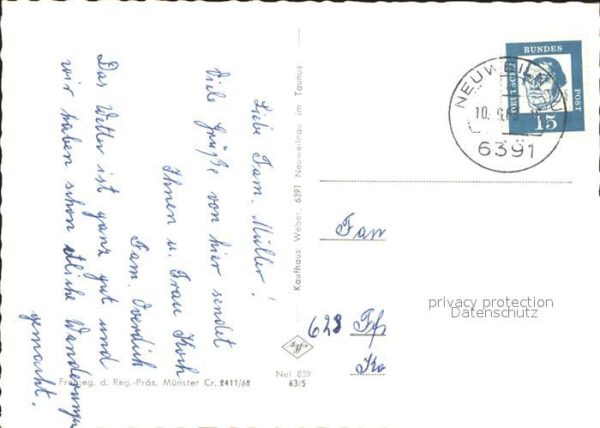 Liebe Fam. Müller!
Viele Grüße von hier sendet
Ihnen u. Frau Koch
Fam. Overdick
Das Wetter ist ganz gut und
wir haben schon etliche Wanderungen
gemacht.
Freigeg. d. Reg.-Präs. Münster Cr. 2411/62
Kaufhaus Weber, 6391 Neuweilnau im Taunus
Nei 032
63/5
DEUTSCHE
BUNDES
POST
15
NEUWEILNAU
10.
6391
Fam
623 Ffm
privacy protection
Datenschutz